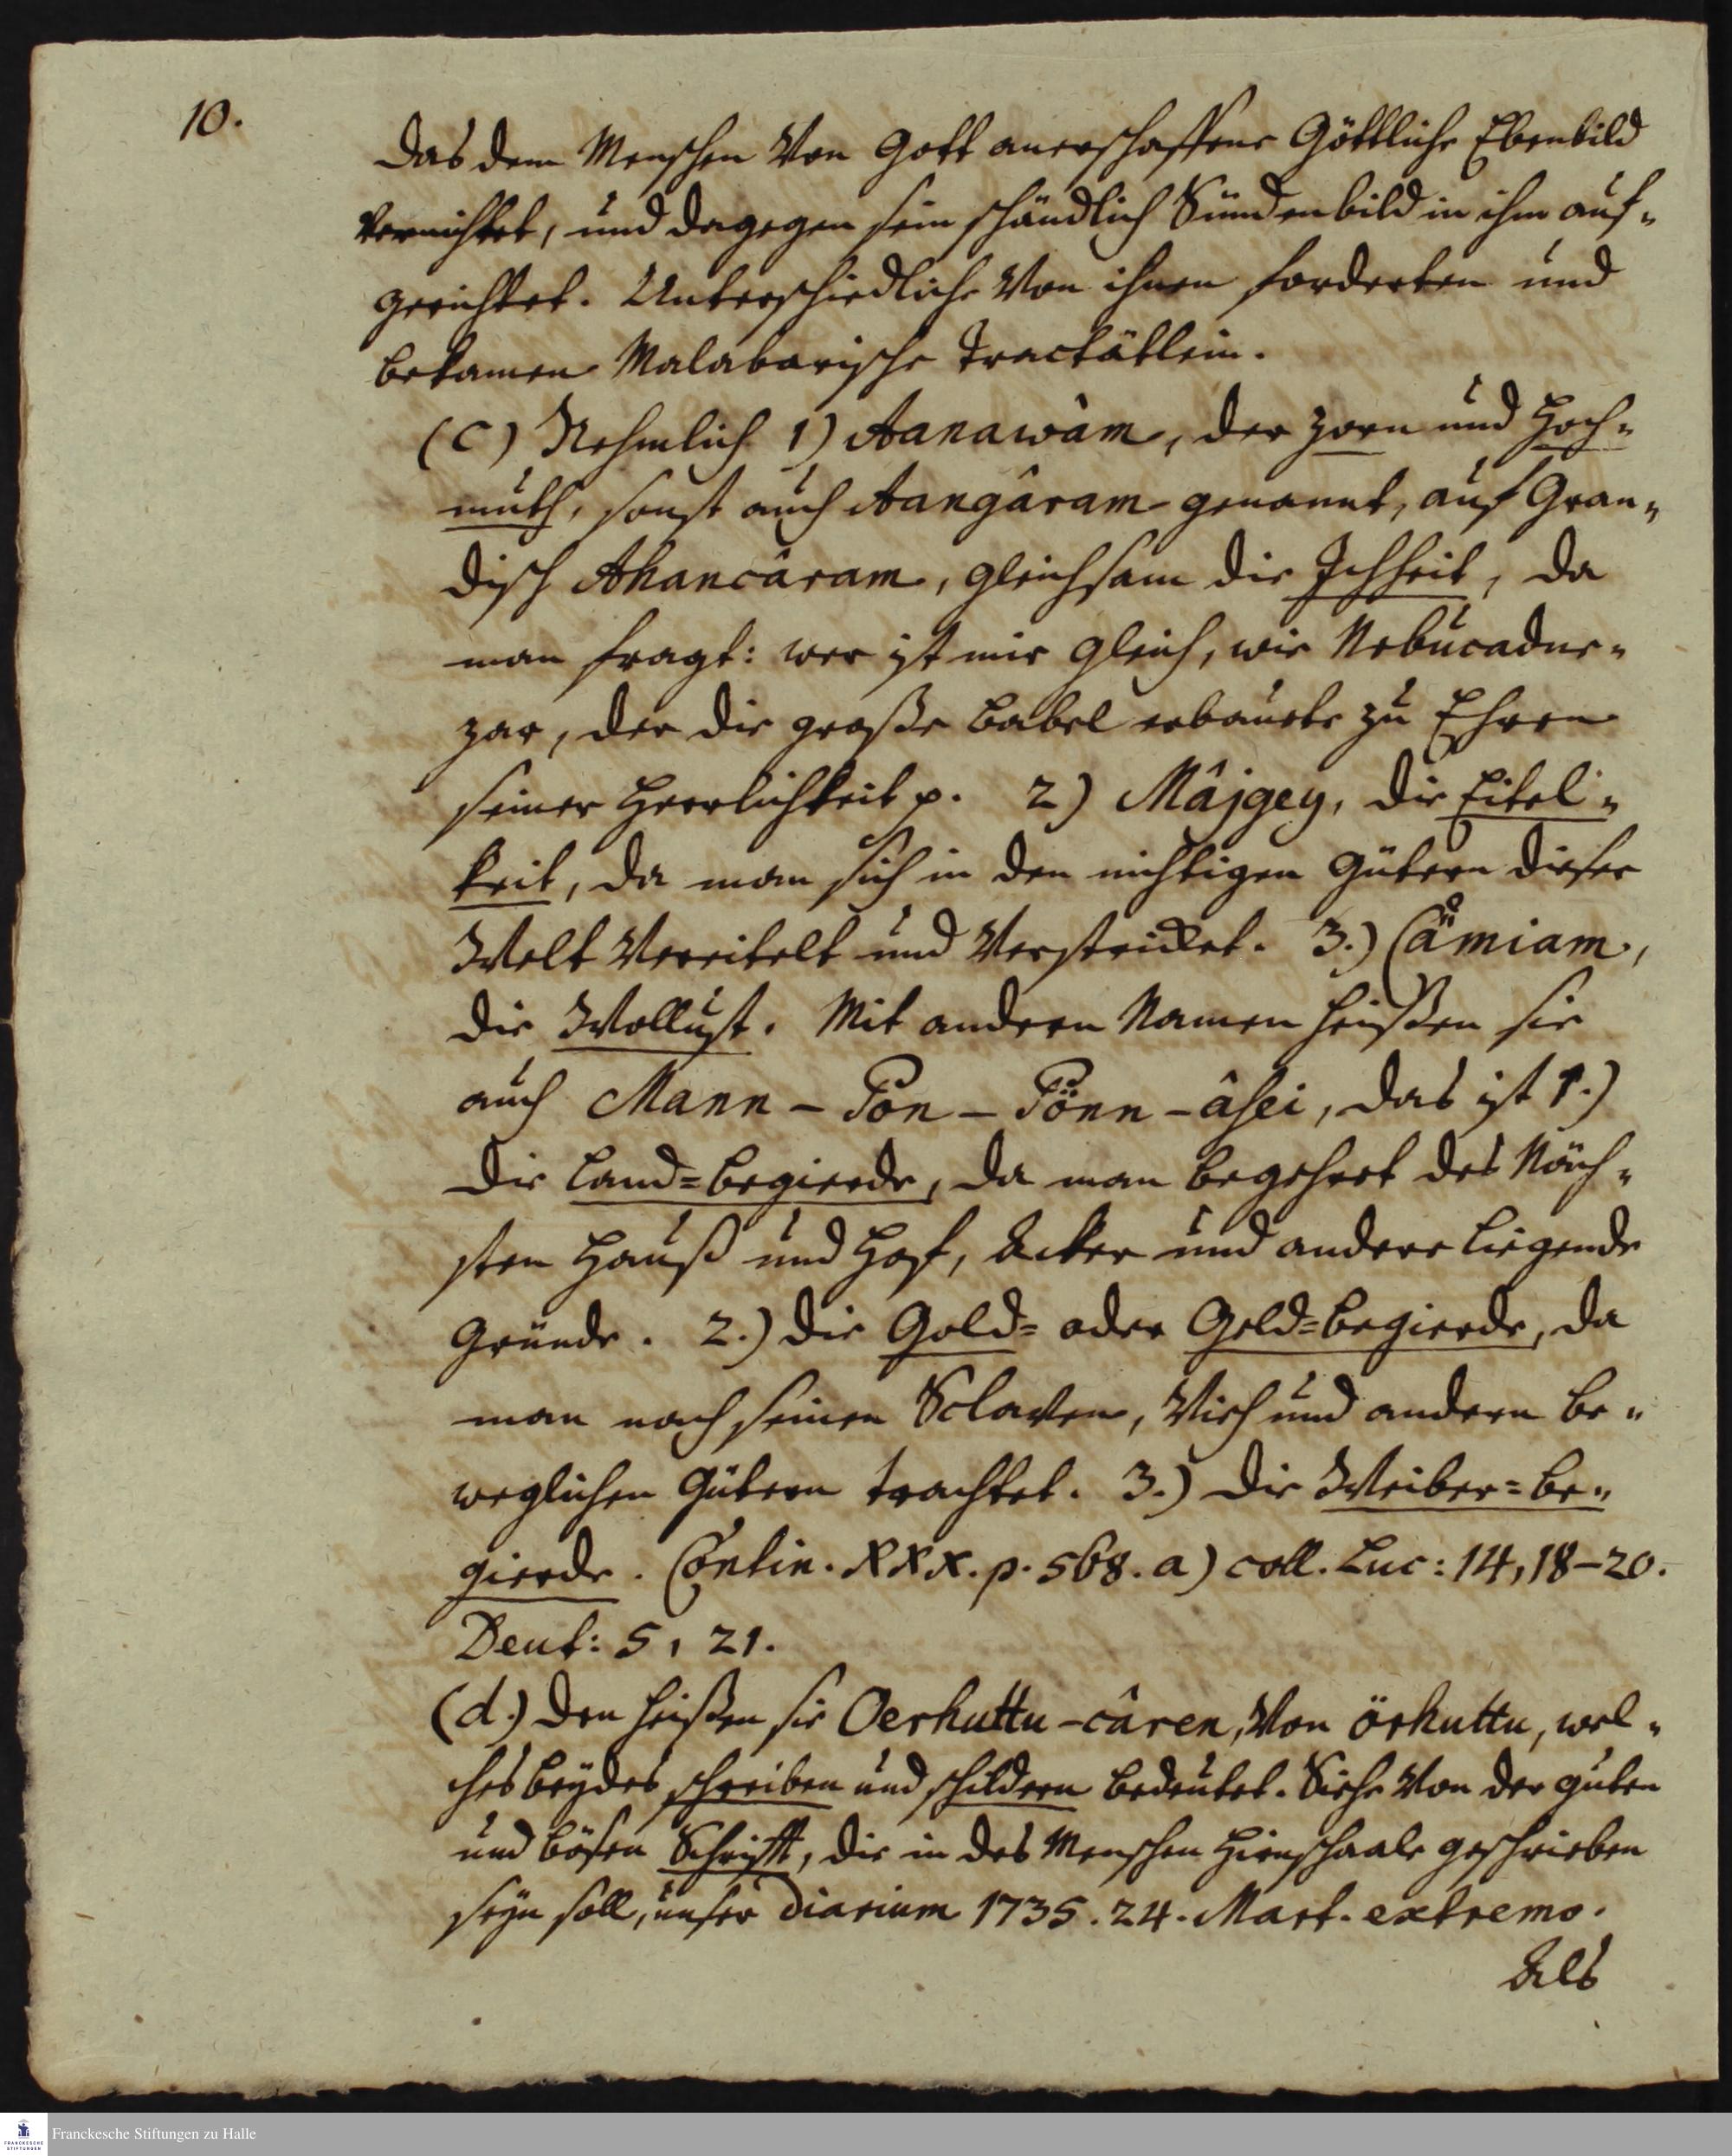 10.
das dem Menschen Von Gott anerschaffene Göttliche Ebenbild
vernichtet, und dagegen sein schändlich Sündenbild in ihm auf-
gerichtet. Unterschiedliche Von ihnen forderten und
bekamen Malabarische Tractätlein.
(C) Nehmlich 1) Aanawâm, der Zorn und Hoch-
muth, sonst auch Aangâram genannt, auf Gran-
disch Ahancâram, gleichsam die Ichheit, da
man fragt: wer ist mir gleich, wie Nebucadne-
zar, der die große Babel erbauete zu Ehren
seiner Herrlichkeit p. 2) Mâjgey, die Eitel-
keit, da man sich in den nichtigen Gütern dieser
Welt Vereitelt und Verstricket. 3.) Cåmiam,
die Wollust. Mit andern Namen heißen sie
auch Mann - Pon - Pönn - âsei, das ist 1.)
die Land=begierde, da man begehret des Näch-
sten Hauß und Hof, Acker und andere liegende
Gründe. 2.) die Gold= oder Geld=begierde, da
man nach seinen Sclaven, Vieh und andern be-
weglichen Gütern trachtet. 3.) die Weiber=be-
gierde. Contin. XXX. p. 568. a) coll. Luc: 14, 18-20.
Deut: 5, 21.
(d.) den heißen sie Oerhuttu-câren, Von örhuttu, wel-
ches beydes schreiben und schildern bedeutet. Siehe Von der guten
und bösen Schrifft, die in des Menschen Hirnschaale geschrieben
seyn soll, unser Diarium 1735. 24. Mart. extremo.
Als
Franckesche Stiftungen zu Halle